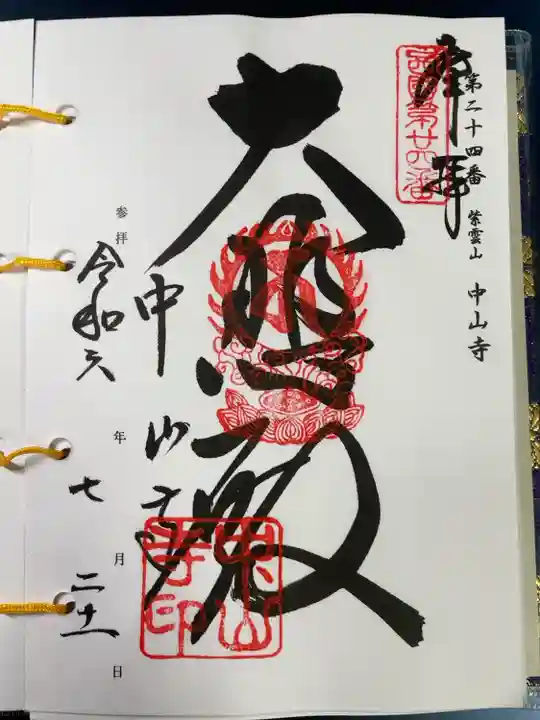 第二十四番 紫雲山 中山寺
奉拝
西國第廿四番
大悲殿
中山寺
中山寺印
参拝 令和六年七月二十一日